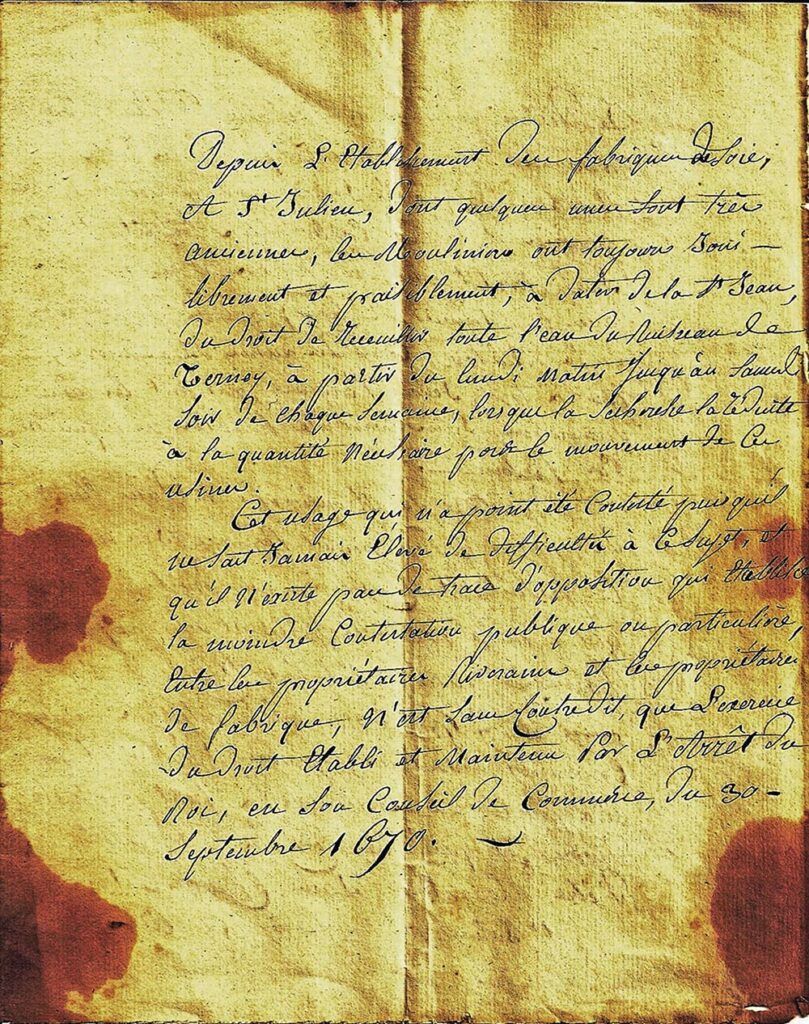 Depuis L'Etablissement des fabriques de Soie,
A St Julien, dont quelques unes sont très
anciennes, les Mouliniers ont toujours Joui
librement et paisiblement, à dater de la St Jean,
du droit de Receuillir toute l'eau du Ruisseau de
Ternay, à partir du lundi matin Jusqu'au Samedi
Soir de chaque Semaine, lorsque la Secheresse la réduite
à la quantité Nécessaire pour le mouvement de Ces
usines.
Cet usage qui n'a point été Contesté puisqu'il
ne s'est Jamais Elévé de difficultés à Ce Sujet, et
qu'il N'existe pas de trace d'opposition qui Etablisse
la moindre Contestation publique ou particulière,
Entre les propriétaires Riverains et les propriétaires
de fabrique, N'est Sans Contredit, que L'exercice
du Droit Etabli et Maintenu Par L'Arrêt du
Roi, en Son Conseil de Commerce, du 30 -
Septembre 1670.